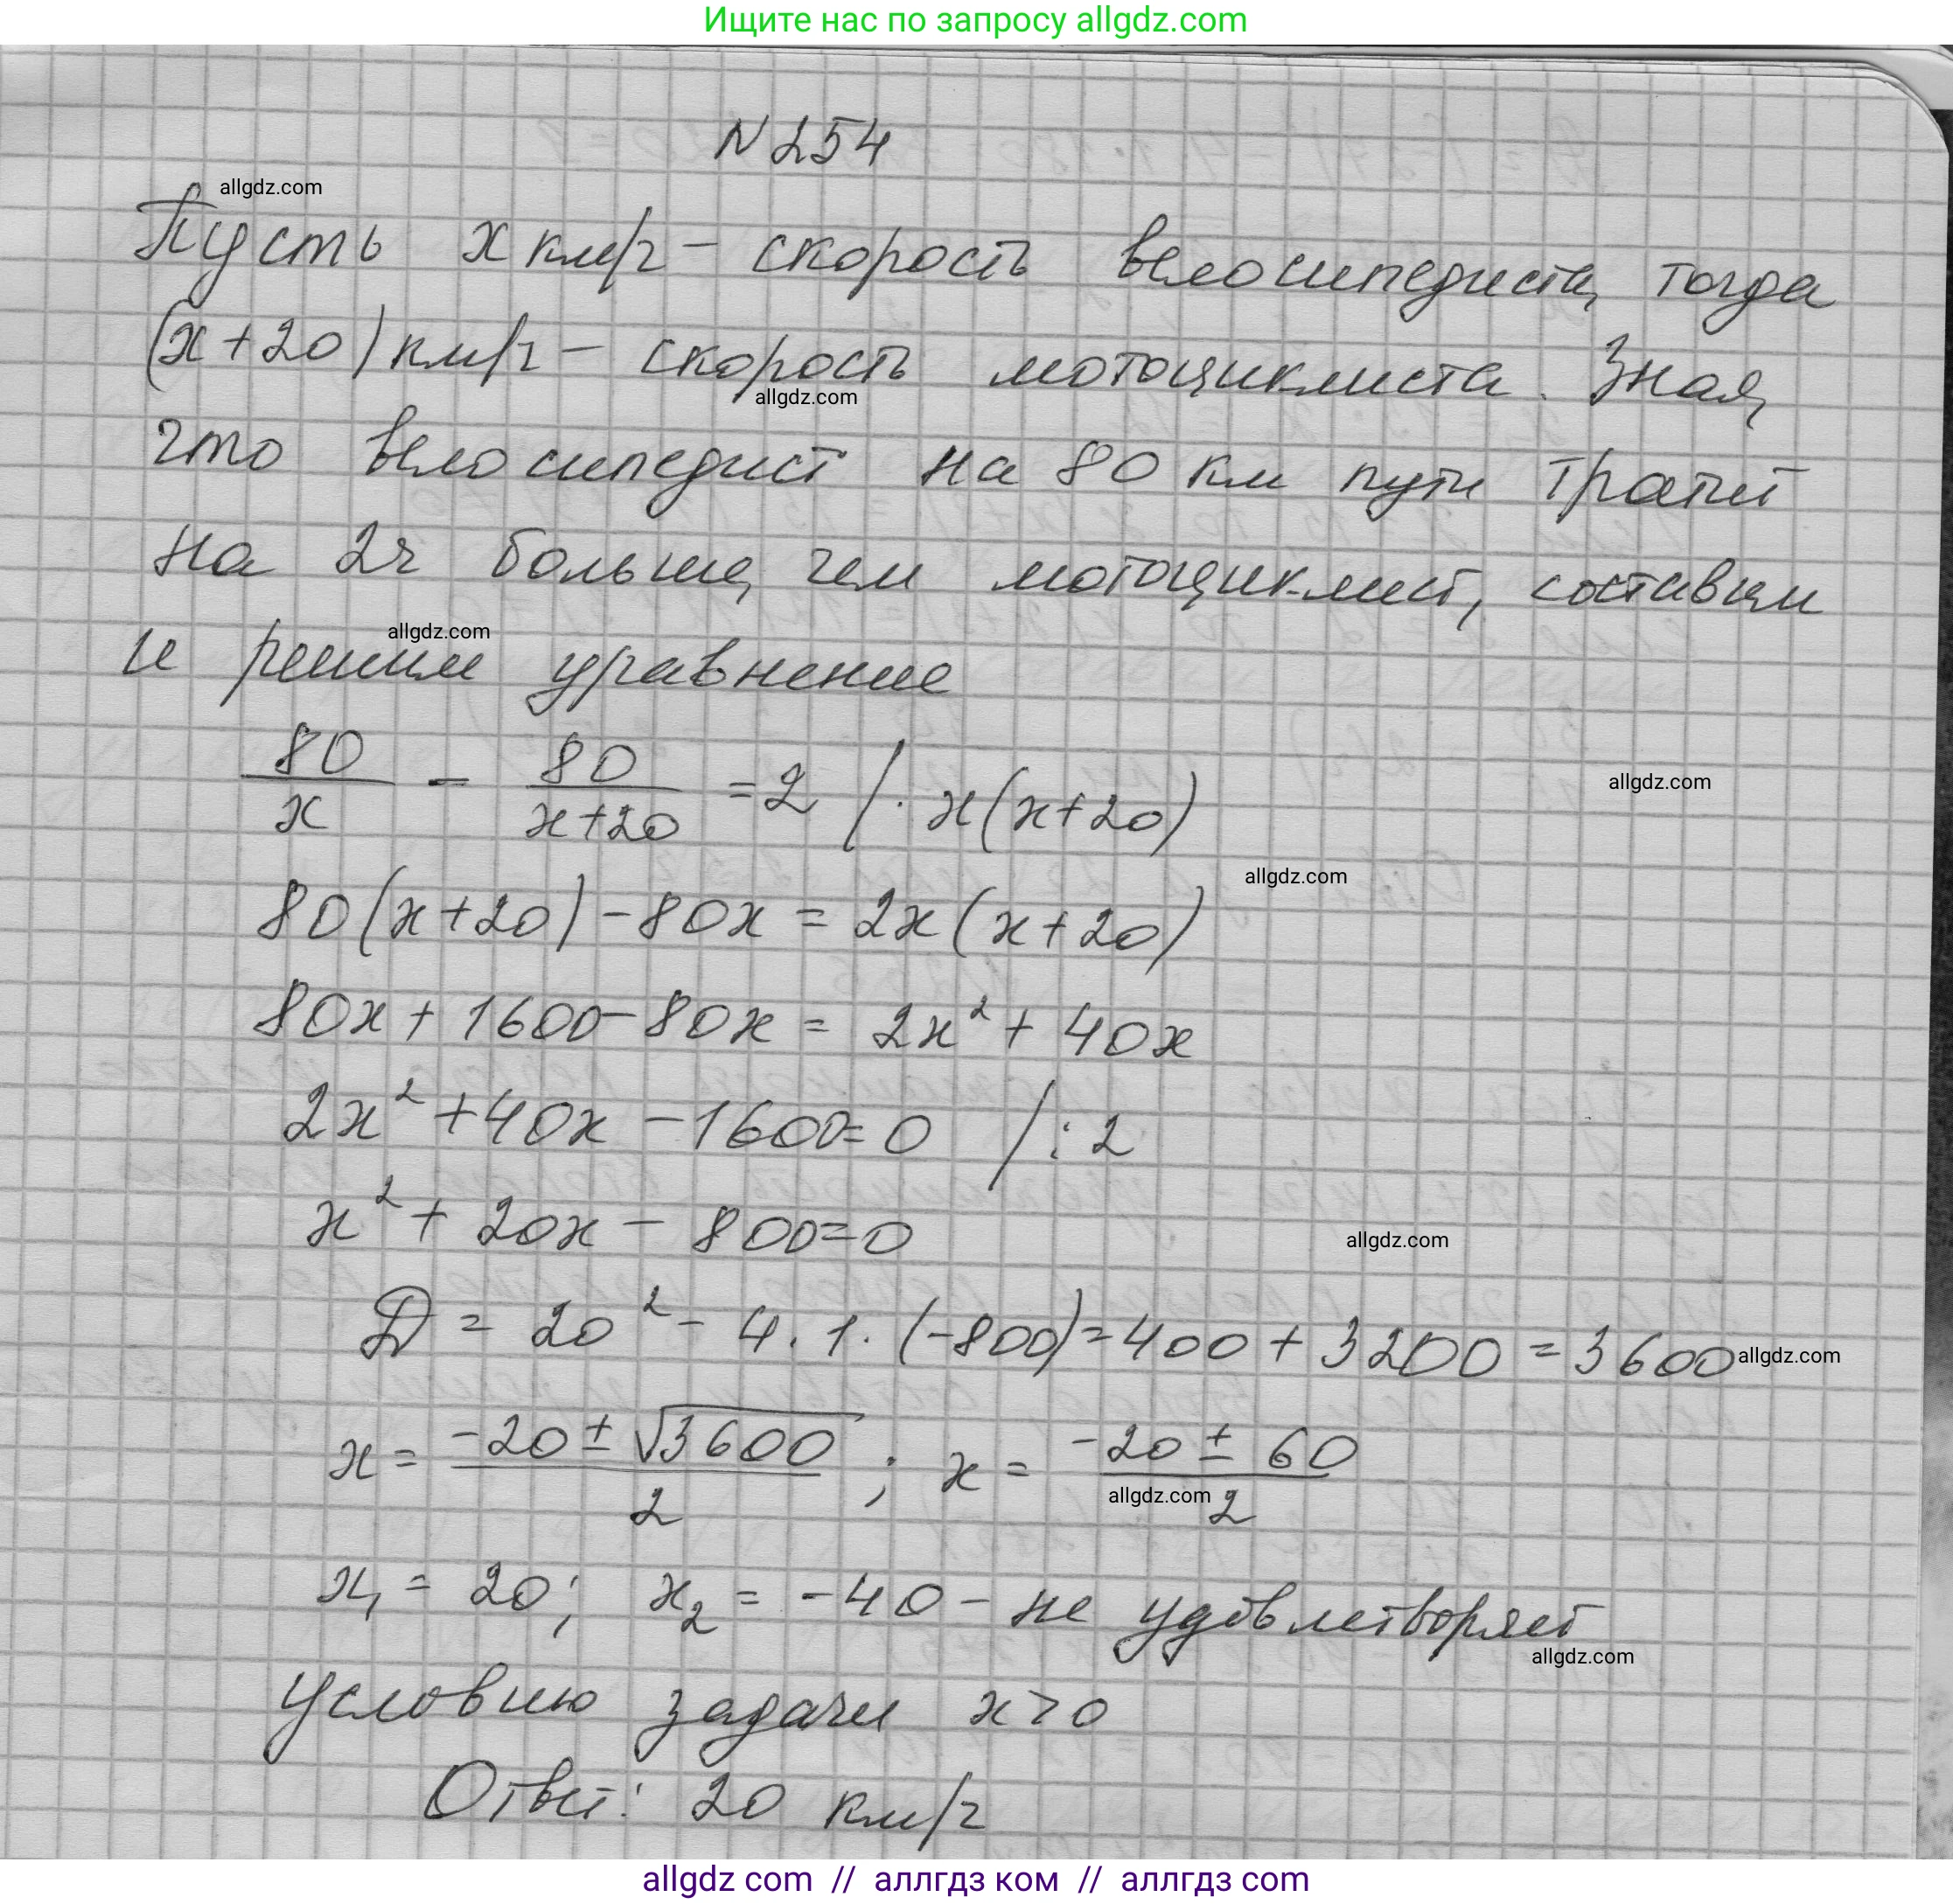 Ищите нас по запросу allgdz.com
N 254
allgdz.com
Пусть x км/ч – скорость велосипедиста, тогда
(x+20) км/ч – скорость мотоциклиста. Зная,
allgdz.com
что велосипедист на 80 км пути тратит
на 2ч больше, чем мотоциклист, составим
allgdz.com
и решим уравнение
80/x - 80/(x+20) = 2 / · x(x+20)
allgdz.com
allgdz.com
80(x+20) - 80x = 2x(x+20)
80x + 1600 - 80x = 2x² + 40x
2x² + 40x - 1600 = 0 / : 2
x² + 20x - 800 = 0
allgdz.com
D = 20² - 4 · 1 · (-800) = 400 + 3200 = 3600
allgdz.com
x = (-20 ± √3600)/2 ; x = (-20 ± 60)/2
allgdz.com
x₁ = 20; x₂ = -40 - не удовлетворяет
allgdz.com
условию задачи x > 0
Ответ: 20 км/ч
allgdz com // аллгдз ком // аллгдз com